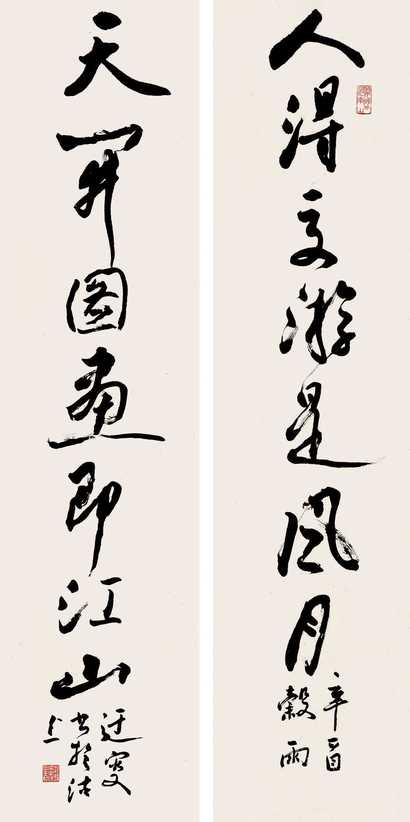 人得交游是風月
辛酉
穀雨
天開圖畫即江山
迂叟
书於沽
上